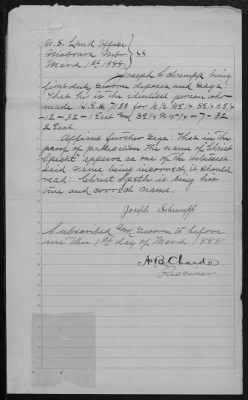 U.S. Land Office
Nebr } ss
March 1st 1888.
Joseph Schrempp being
first duly sworn deposes and says:
That he is the identical person who
made H.E. # 7188 for N½ NE¼ SE¼ NE¼
-12-32-1 East and SW¼ NW¼-7-32
2 East.
Affiant further says: That in the
proof of publication the name of "Christ
" appears as one of the witnesses
said name being incorrect, it should
read "Christ Speth" is being his
true and correct name.
Joseph Schrempp
Subscribed and sworn to before
me this 1st day of March 1888
A.B. Charde
Receiver